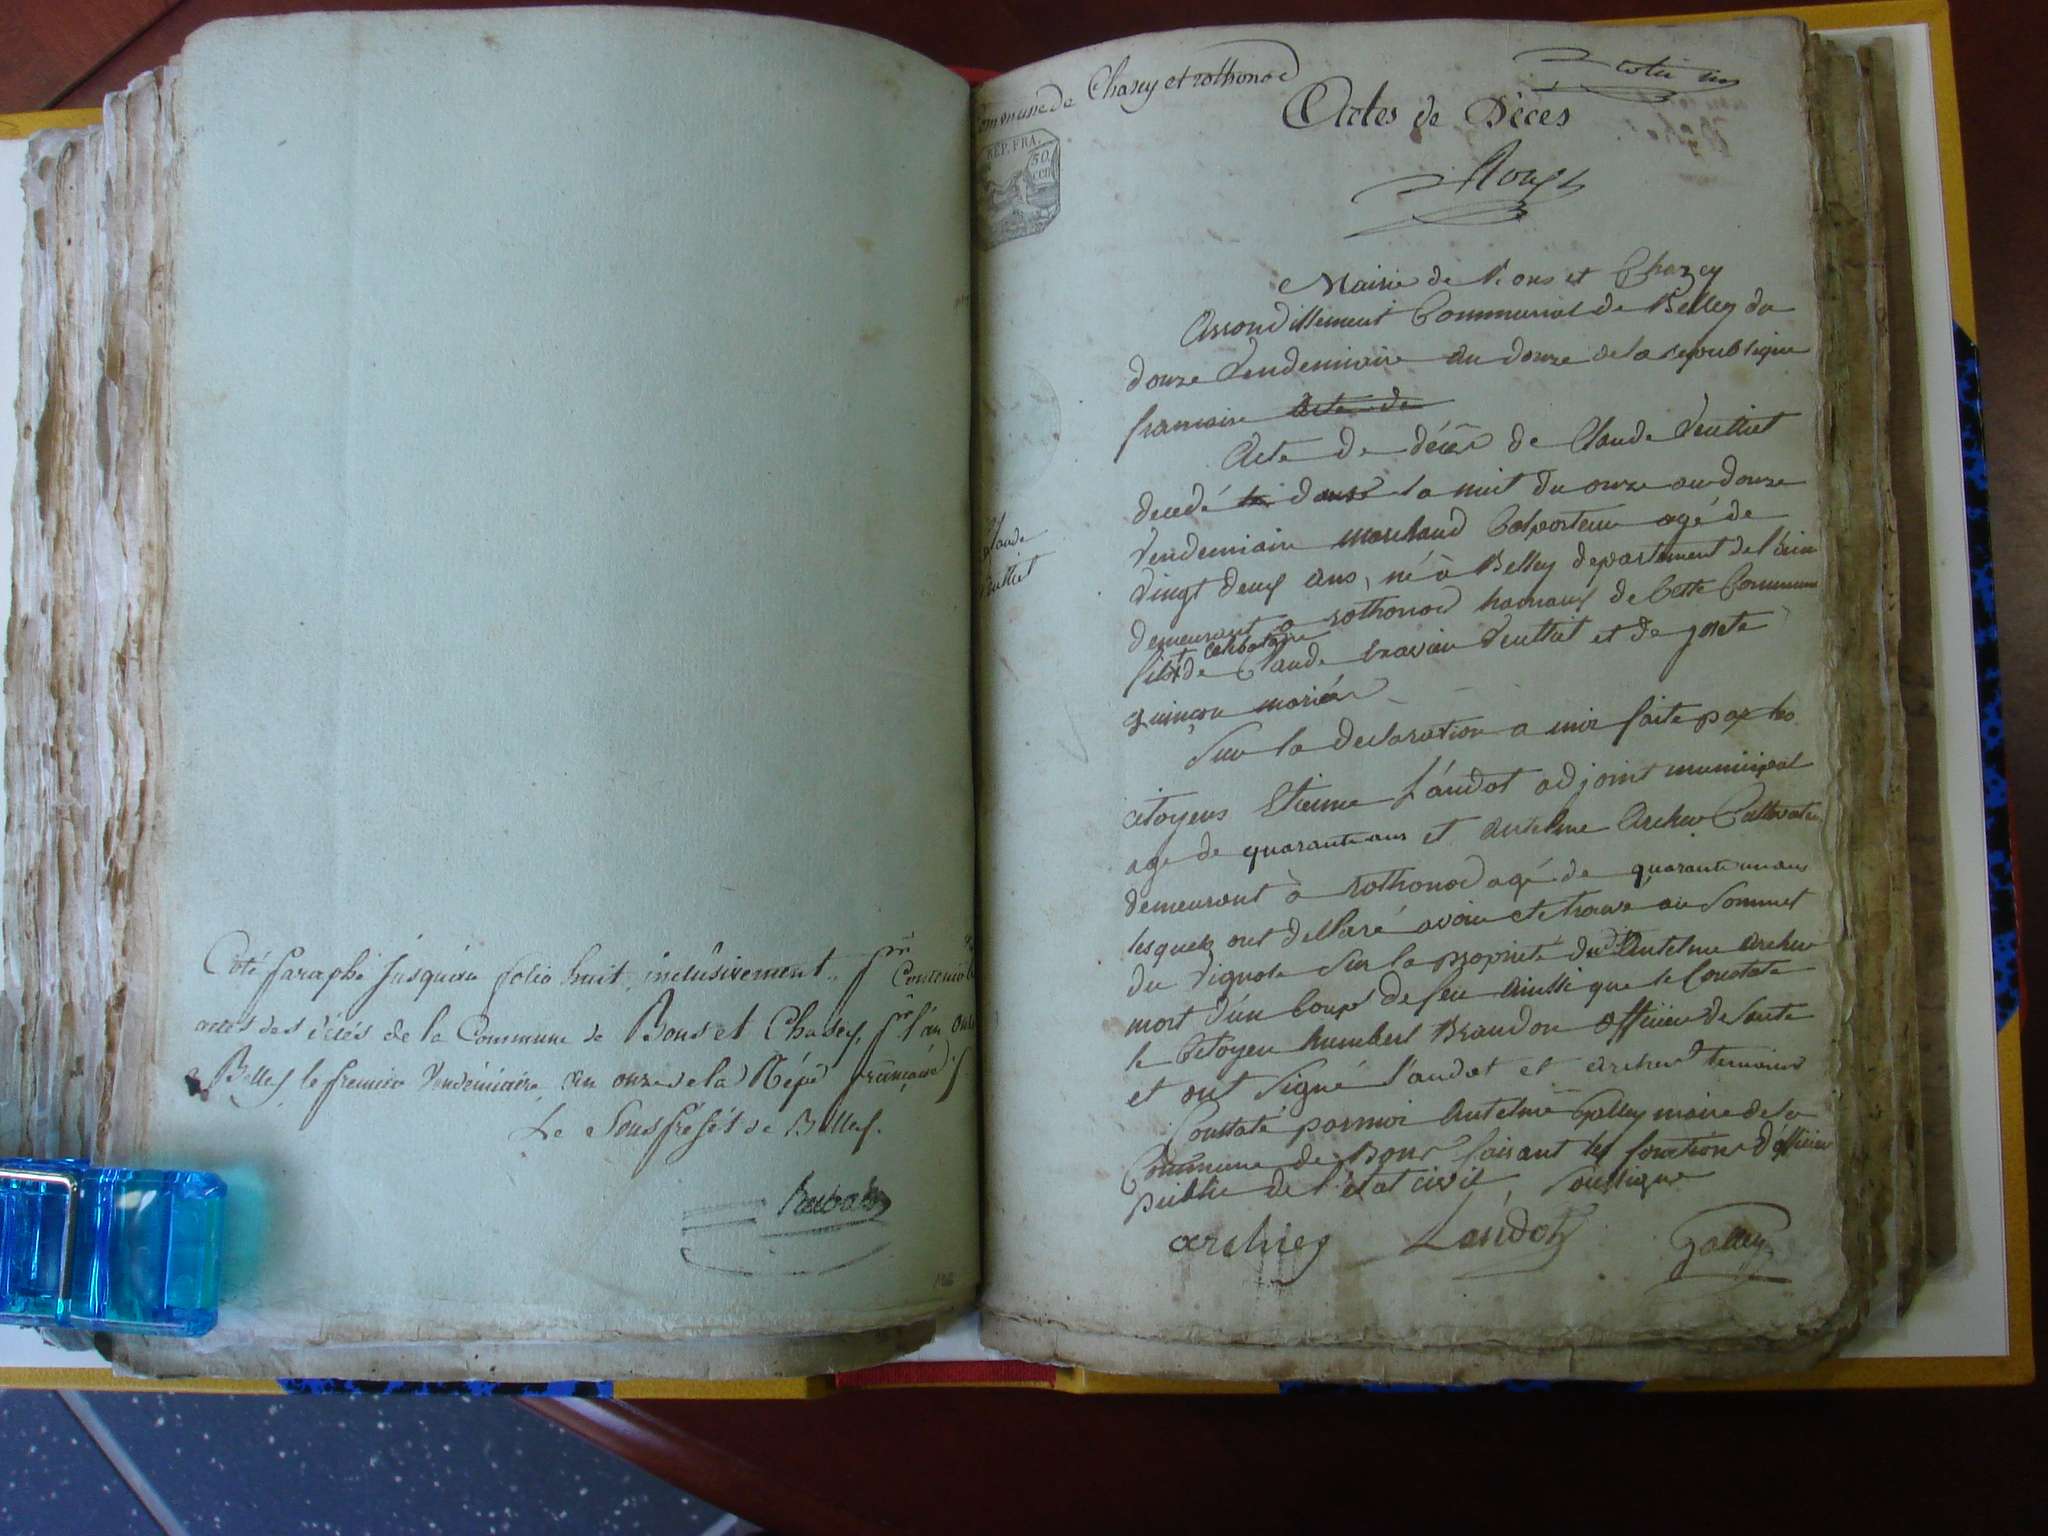 Coté paraphé jusqu'au folio huit inclusivement, pr Contenir les
actes des décés de la Commune de Bons et Chasey, pr l'an onze
a Belley le premier Vendémiaire an onze de la Répe française
Le Sous préfet de Belley.
Commune de Chasey et rothonod
Actes de Décès
REP. FRA.
50
CEN
Mairie de Bons et Chazey
Arrondissement Communal de Belley du
douze Vendemiaire an douze de la republique
francaise acte de
Acte de décès de Claude Veuilliet
decedé dans la nuit du onze au douze
Vendemiaire marchand Colporteur agé de
vingt deux ans, né à Belley departement de l'ain
demeurant a rothonod hamaux de Cette Commune
celibataire
fils de Claude Veuilliet et de
mariés
Claude
Veuilliet
Sur la declaration a moi faite par les
citoyens Etienne Landot adjoint municipal
age de quarante ans et antelme Archier Cultivateur
demeurant à rothonod agé de quarante un ans
lesquels ont dellaré avoir eté trouvé au sommet
du Vignole sur la proprieté dudt Antelme archier
mort d'un Coup de feu ainssi que le Constate
le Citoyen humbert Brandon officier de sante
et ont signé Landot et archier temoins
Constaté par moi Antelme Galley maire de la
Commune de Bons faisant les fonctions d'officier
public de l'état civil, soussigné
archier Landot Galley